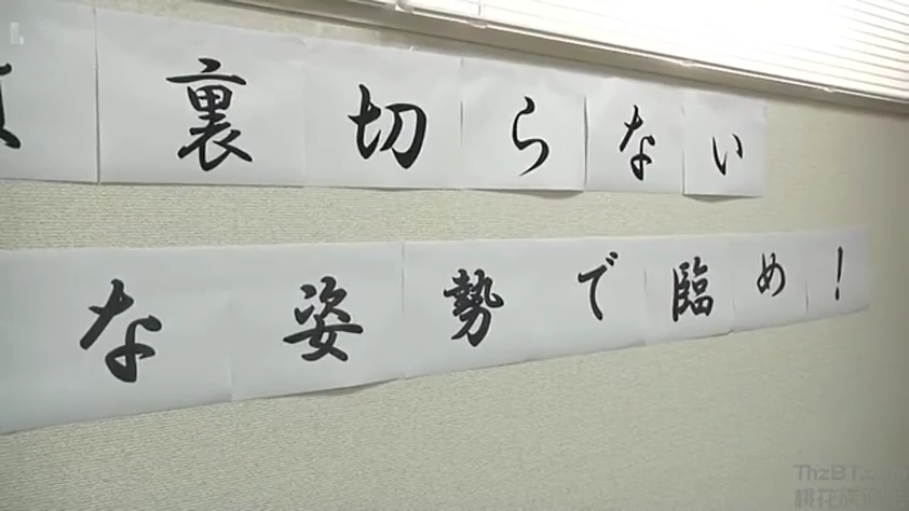 裏切らない
な姿勢で臨め!
ThzBT.c